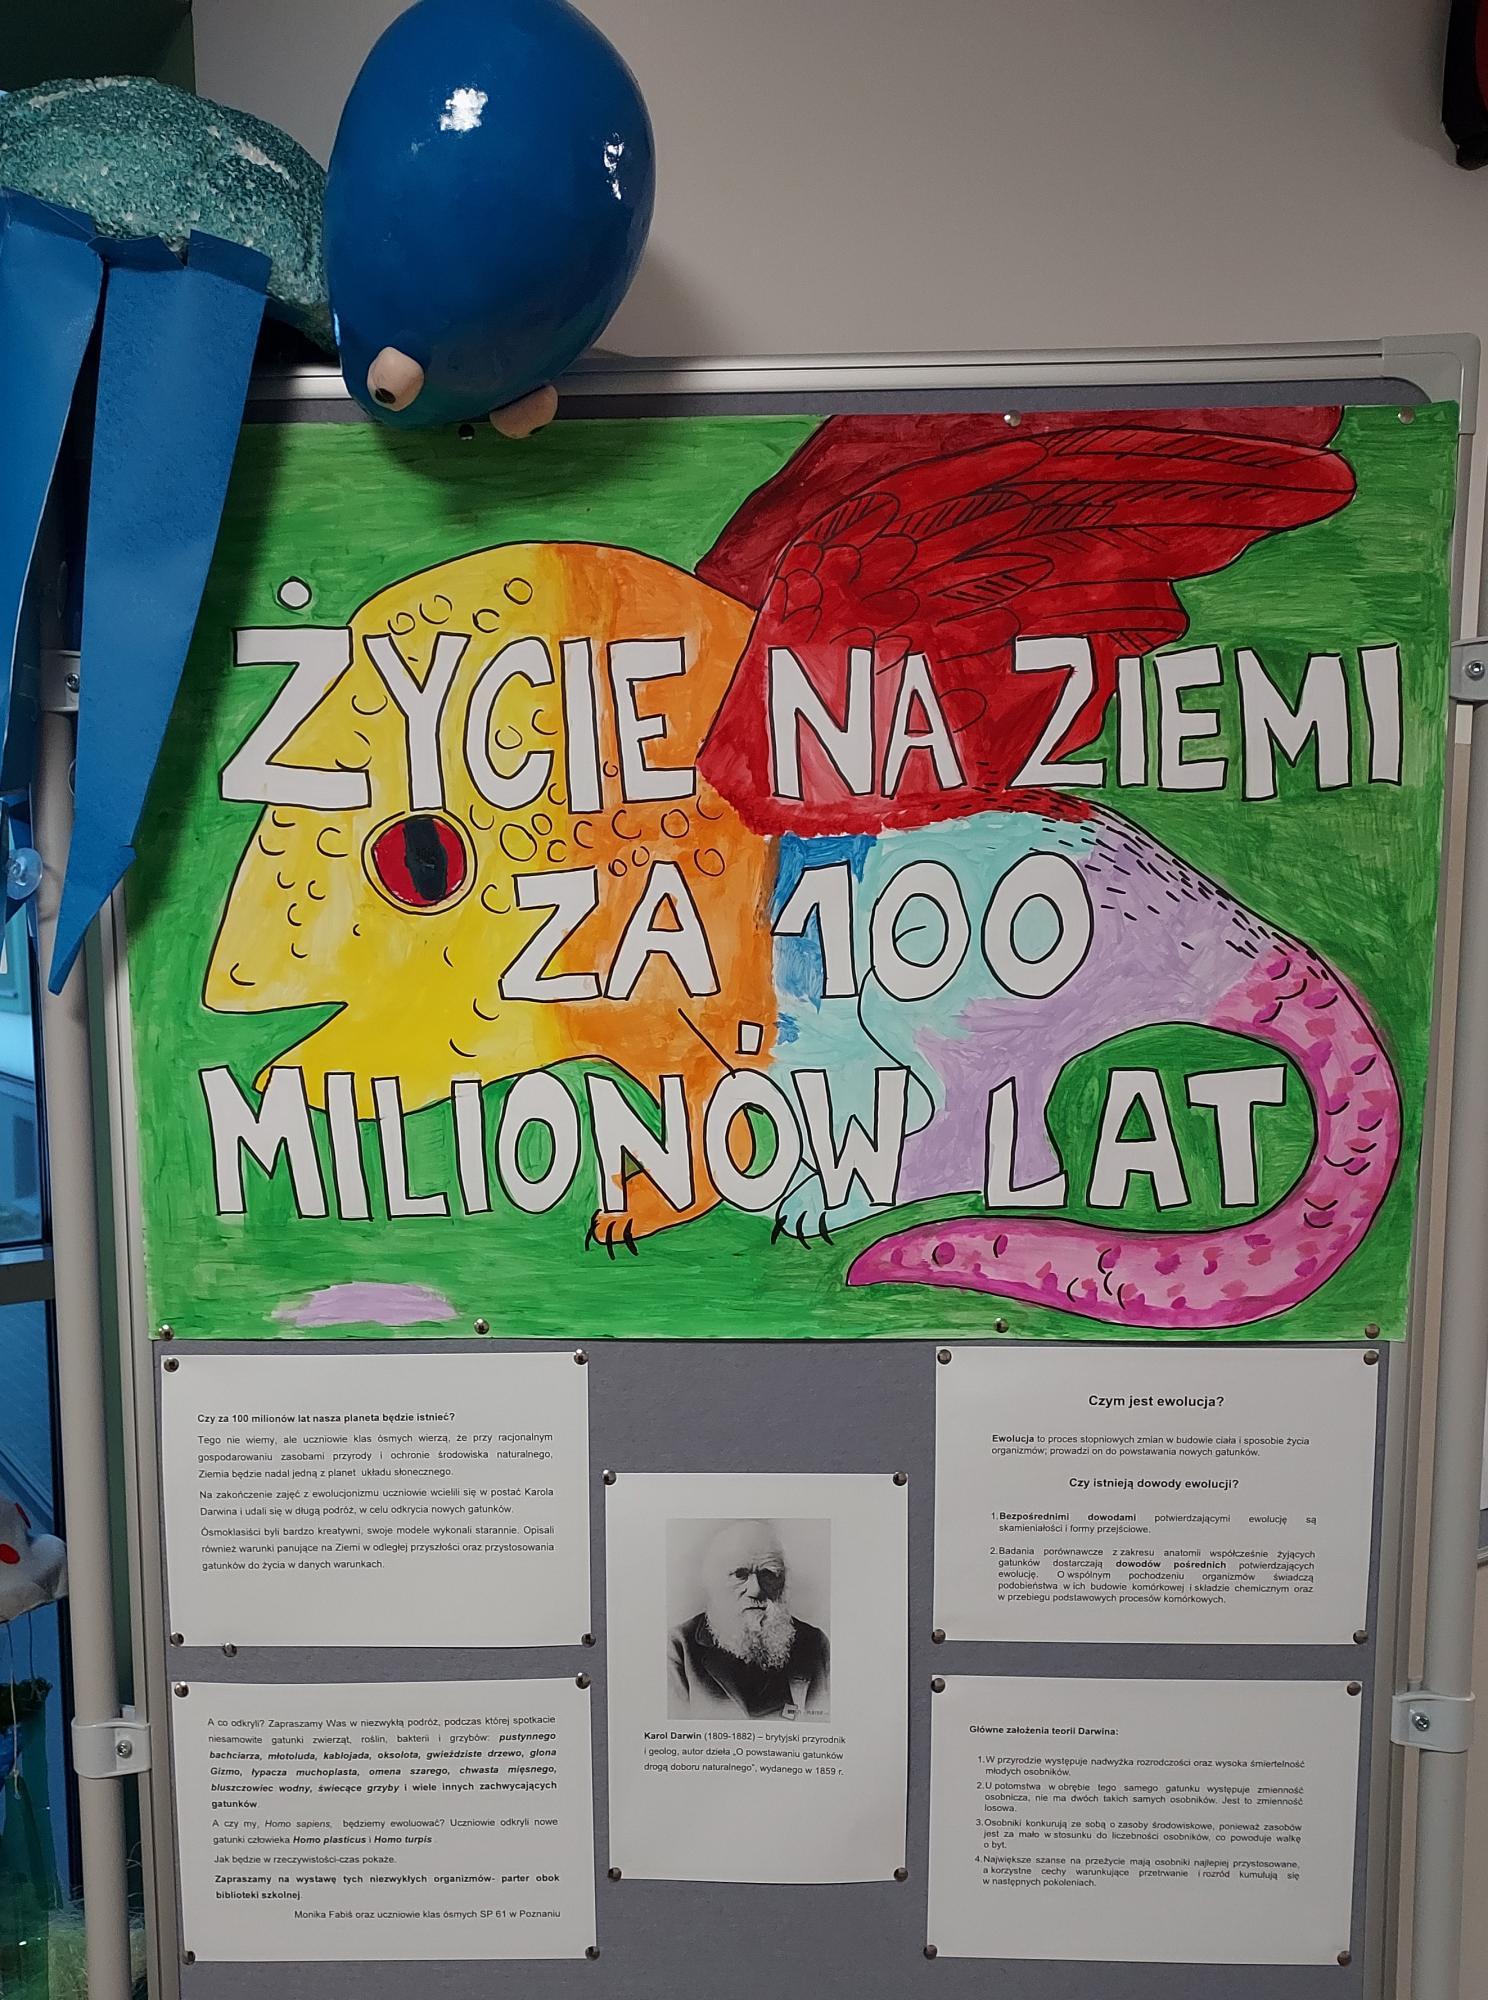 ŻYCIE NA ZIEMI
ZA 100
MILIONÓW LAT
Czy za 100 milionów lat nasza planeta będzie istnieć?
Tego nie wiemy, ale uczniowie klas ósmych wierzą, że przy racjonalnym
gospodarowaniu zasobami przyrody i ochronie środowiska naturalnego,
Ziemia będzie nadal jedną z planet układu słonecznego.
Na zakończenie zajęć z ewolucjonizmu uczniowie wcielili się w postać Karola
Darwina i udali się w długą podróż, w celu odkrycia nowych gatunków.
Ósmoklasiści byli bardzo kreatywni, swoje modele wykonali starannie. Opisali
również warunki panujące na Ziemi w odległej przyszłości oraz przystosowania
gatunków do życia w danych warunkach.
A co odkryli? Zapraszamy Was w niezwykłą podróż, podczas której spotkacie
niesamowite gatunki zwierząt, roślin, bakterii i grzybów: pustynnego
bachciarza, młotoluda, kablojada, oksolota, gwieździste drzewo, glona
Gizmo, łypacza muchoplasta, omena szarego, chwasta mięsnego,
bluszczowiec wodny, świecące grzyby i wiele innych zachwycających
gatunków.
A czy my, Homo sapiens, będziemy ewoluować? Uczniowie odkryli nowe
gatunki człowieka Homo plasticus i Homo turpis .
Jak będzie w rzeczywistości-czas pokaże.
Zapraszamy na wystawę tych niezwykłych organizmów- parter obok
biblioteki szkolnej.
Monika Fabiś oraz uczniowie klas ósmych SP 61 w Poznaniu
Karol Darwin (1809-1882) – brytyjski przyrodnik
i geolog, autor dzieła „O powstawaniu gatunków
drogą doboru naturalnego", wydanego w 1859 r.
Czym jest ewolucja?
Ewolucja to proces stopniowych zmian w budowie ciała i sposobie życia
organizmów; prowadzi on do powstawania nowych gatunków.
Czy istnieją dowody ewolucji?
1. Bezpośrednimi dowodami potwierdzającymi ewolucję są
skamieniałości i formy przejściowe.
2. Badania porównawcze z zakresu anatomii współcześnie żyjących
gatunków dostarczają dowodów pośrednich potwierdzających
ewolucję. O wspólnym pochodzeniu organizmów świadczą
podobieństwa w ich budowie komórkowej i składzie chemicznym oraz
w przebiegu podstawowych procesów komórkowych.
Główne założenia teorii Darwina:
1. W przyrodzie występuje nadwyżka rozrodczości oraz wysoka śmiertelność
młodych osobników.
2. U potomstwa w obrębie tego samego gatunku występuje zmienność
osobnicza, nie ma dwóch takich samych osobników. Jest to zmienność
losowa.
3. Osobniki konkurują ze sobą o zasoby środowiskowe, ponieważ zasobów
jest za mało w stosunku do liczebności osobników, co powoduje walkę
o byt.
4. Największe szanse na przeżycie mają osobniki najlepiej przystosowane,
a korzystne cechy warunkujące przetrwanie i rozród kumulują się
w następnych pokoleniach.